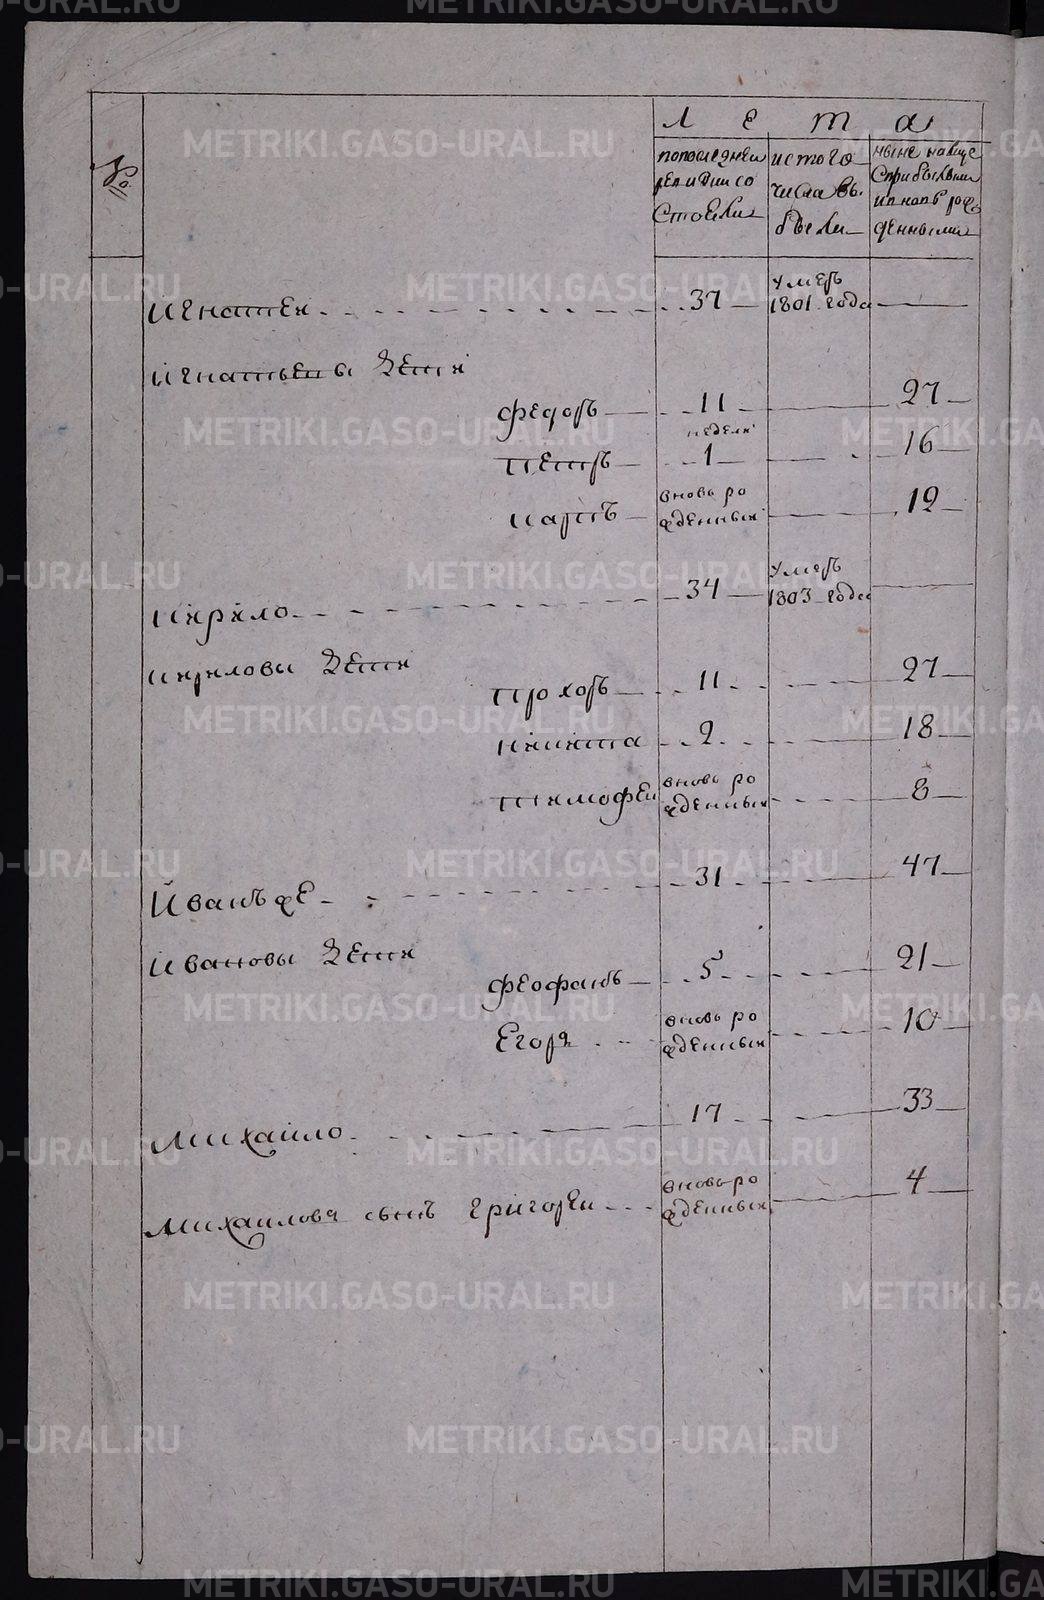 №
Лета
по последней ревидии со стояли
ис того числа вы были
ныне налице с прибылыми и вновь рож денными
Игнатеи 37 умеръ 1801 года
Игнатьевы дети
Федоръ 11 27
Петръ 1 неделя 16
Карпъ вновь ро жденныи 12
Кирило 34 умеръ 1803 года
Кириловы дети
Прохоръ 11 27
Никита 2 18
Тимофеи вновь ро жденныи 8
Иванъ же 31 47
Ивановы дети
Феофанъ 5 21
Егоръ вновь ро жденныи 10
Михаило 17 33
Михаилова сынъ Григореи вновь ро жденныи 4
METRIKI.GASO-URAL.RU